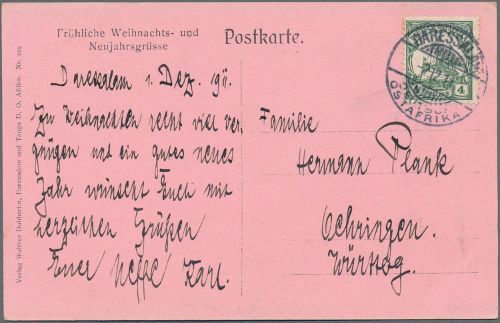 Fröhliche Weihnachts- und
Neujahrsgrüsse
Postkarte.
Daressalam 1. Dez. 19
Zu Weihnachten recht viel Ver
gnügen und ein gutes neues
Jahr wünscht Euch mit
herzlichen Grüßen
Euer Neffe Karl.
Familie
Hermann Plank
Oehringen.
Württbg.
DARESSALAM
4
OSTAFRIKA
Verlag Walther Dobbertin, Daressalam und Tanga D. O. Afrika. No. 109